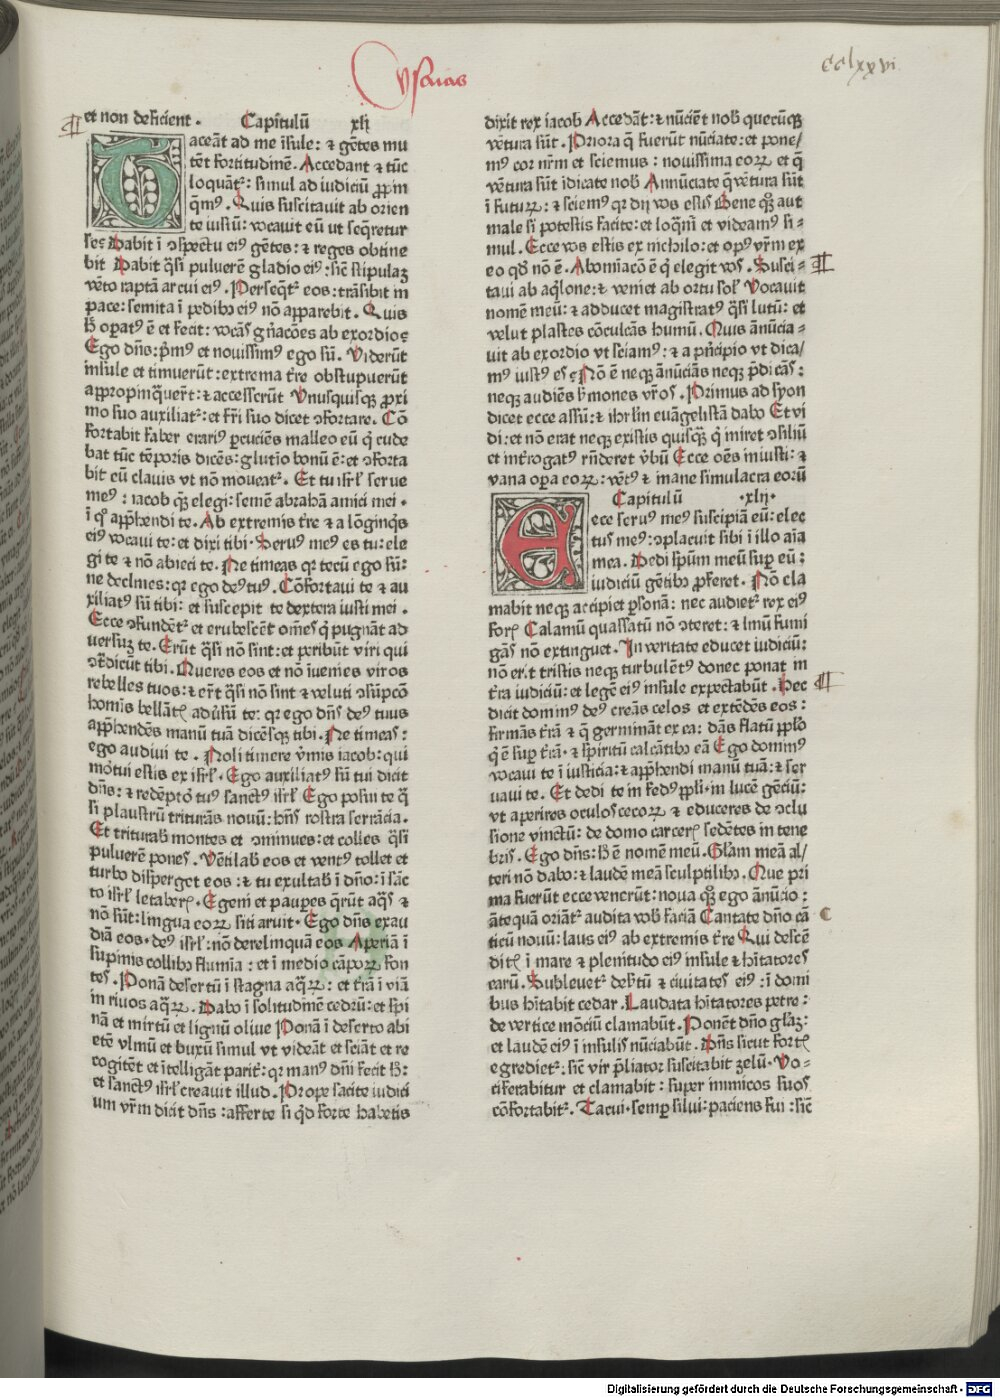 Ysaias
cclxxvi
et non deficient . Capitulū xlj
Taceāt ad me īsule : ꝛ gētes mu
tēt fortitudinē . Accedant ꝛ tūc
loquātᷣ : simul ad iudiciū ꝓpin
q̄mꝰ . Quis suscitauit ab orien
te iustū : vocauit eū ut seq̄retur
se⁊ Dabit ī ɔspectu eiꝰ gētes : ꝛ reges obtine
bit Dabit q̄si puluerē gladio eiꝰ : sic̄ stipulaꝫ
vēto raptā arcui eiꝰ . Perseq̄tᷣ eos : trāsibit in
pace : semita ī pedibꝰ eiꝰ nō apparebit . Quis
h̄ oꝑatꝰ ē et fecit : vocās gn̄acōes ab exordio⁊
Ego dn̄s : p̄mꝰ et nouissimꝰ ego sū . Viderūt
insule et timuerūt : extrema t̄re obstupuerūt
appropinq̄uer̄t : ꝛ accesserūt Vnusquisqꝫ ꝓxi
mo suo auxiliatᷣ : et fr̄i suo dicet ɔfortare . Cō
fortabit faber erariꝰ ꝑcuciēs malleo eū q̇ cude
bat tūc tēporis dicēs : glutīo bonū ē : et ɔforta
bit eū clauis vt nō moueatᷣ . Et tu isrl̄ serue
meꝰ : iacob quē elegi : semē abrahā amici mei .
ī q̊ app̄hendi te . Ab extremis t̄re ꝛ a lōginq̄s
eiꝰ vocaui te : et dixi tibi . Seruꝰ meꝰ es tu : ele
gi te ꝛ nō abieci te . Ne timeas qꝛ tecū ego sū :
ne declines : qꝛ ego deꝰ tuꝰ . Cōfortaui te ꝛ au
xiliatꝰ sū tibi : et suscepit te dextera iusti mei .
Ecce ɔfundētᷣ et erubescēt om̄es q̇ pugnāt ad
uersuꝫ te . Erūt q̄si nō sint : et peribūt viri qui
ɔtͬdicūt tibi . Queres eos et nō īuenies viros
rebelles tuos : ꝛ er̄t q̄si nō sint ꝛ veluti ɔsūpcō
homīs bellātꝭ aduͥsū te : qꝛ ego dn̄s deꝰ tuus
app̄hendēs manū tuā dicēsqꝫ tibi . Ne timeas :
ego adiuui te . Noli timere v̄mis iacob : qui
mortui estis ex isrl̄ . Ego auxiliatꝰ sū tui dicit
dn̄s : ꝛ redēptoͬ tuꝰ sanctꝰ isrl̄ Ego posui te q̄
si plaustrū triturās nouū : hn̄s rostra serrācia .
Et triturab̄ montes et ɔminues : et colles q̄si
puluerē pones . Vētilab̄ eos et ventꝰ tollet et
turbo disperget eos : ꝛ tu exultab̄ ī dn̄o : ī sāc
to isrl̄ letaberꝭ . Egeni et pauꝑes q̄rūt aq̄s ꝛ
nō sūt : lingua eoꝝ siti aruit . Ego dn̄s exau
diā eos . deꝰ isrl̄ : nō derelinquā eos Aperiā ī
supinis collibꝰ flumīa : et ī medio cāporꝝ fon
tes . Ponā desertū ī stagna aq̄ꝝ : et t̄rā īuiā
in riuos aq̄ꝝ . Dabo ī solitudinē cedrū : et spi
nā et mirtū et lignū oliue Ponā ī deserto abi
etē vlmū et buxū simul vt videāt et sciāt et re
cogitēt et ītelligāt paritᷣ : qꝛ manꝰ dn̄i fecit h̄ :
et sanctꝰ isrl̄ creauit illud . Prope facite iudici
um vr̄m dicit dn̄s : afferte si q̇d forte habetis
dixit rex iacob Accedāt : ꝛ nūciēt nob̄ quecūqꝫ
vētura sūt . Priora q̄ fuerūt nūciate : et pone/
mꝰ cor nr̄m et sciemus : nouissima eoꝝ et q̄
vētura sūt īdicate nob̄ Annūciate q̄ vētura sūt
ī futuꝝ : ꝛ sciemꝰ qꝛ dij vos estis Bene qꝫ aut
male si potestis facite : et loq̄mͥ et videamꝰ si-
mul . Ecce vos estis ex nichilo : et opꝰ vr̄m ex
eo qd̄ nō ē . Abomīacō ē q̇ elegit vos . Susci-
taui ab aq̄lone : ꝛ veniet ab ortu sol̄ Vocauit
nomē meū : ꝛ adducet magistratꝰ q̄si lutū : et
velut plastes cōculcās humū . Quis ānūcia-
uit ab exordio vt sciamꝰ : ꝛ a pͥncipio vt dica/
mꝰ iustꝰ es⁊ Nō ē neqꝫ ānūciās neqꝫ p̄dicās :
neqꝫ audiēs ẜmones vr̄os . Primus ad syon
dicet ecce assū : ꝛ ihrl̄m euāgelistā dabo Et vi
di : et nō erat neqꝫ ex istis quisqꝫ q̇ miret̄ ɔsiliū
et int̄rogatꝰ rn̄deret v̄bū Ecce oēs iniusti : ꝛ
vana oꝑa eoꝝ : ventꝰ ꝛ inane simulacra eorū
Capitulū .xlij.
Ecce seruꝰ meꝰ suscipiā eū : elec
tus meꝰ : ɔplacuit sibi ī illo aīa
mea . Dedi sp̄um meū suꝑ eū :
iudiciū gētibꝰ ꝓferet . Nō cla
mabit neqꝫ accipiet ꝑsonā : nec audietᷣ vox eiꝰ
forꝭ Calamū quassatū nō ɔteret : ꝛ linū fumi
gās nō extinguet . In veritate educet iudiciū :
nō erit tristis neqꝫ turbulētꝰ donec ponat in
t̄ra iudiciū : et legē eiꝰ insule expectabūt . Hec
dicit dominꝰ deꝰ creās celos et extēdēs eos :
firmās t̄rā ꝛ q̄ germināt ex ea : dās flatū ppl̄o
q̇ ē suꝑ t̄rā . ꝛ spiritū calcātibꝰ eā Ego dominꝰ
vocaui te ī iusticia : ꝛ app̄hendi manū tuā : ꝛ ser
uaui te . Et dedi te in fedꝰ ppl̄i . in lucē gēciū :
vt aperires oculos cecoꝝ ꝛ educeres de ɔclu
sione vinctū : de domo carcerꝭ sedētes in tene
bris . Ego dn̄s : h̄ ē nomē meū . Gl̄am meā al/
teri nō dabo : ꝛ laudē meā sculptilibꝰ . Que pri
ma fuerūt ecce venerūt : noua qꝫ ego ānūcio :
āteqꝫ oriātᷣ audita vob̄ faciā Cantate dn̄o cā
ticū nouū : laus eiꝰ ab extremis t̄re Qui descē
ditꝭ ī mare ꝛ plenitudo eiꝰ insule ꝛ hītatores
earū . Subleuetᷣ desertū ꝛ ciuitates eiꝰ : ī domi
bus hītabit cedar . Laudate hītatores petre :
de vertice mōciū clamabūt . Ponēt dn̄o gl̄aꝫ :
et laudē eiꝰ ī insulis nūciabūt . Dn̄s sicut fortꝭ
egredietᷣ : sic̄ vir p̄liator suscitabit zelū . Vo-
ciferabitur et clamabit : super inimicos suos
cōfortabitᷣ . Tacui . semꝑ silui : paciens fui : sic̄
Digitalisierung gefördert durch die Deutsche Forschungsgemeinschaft - DFG